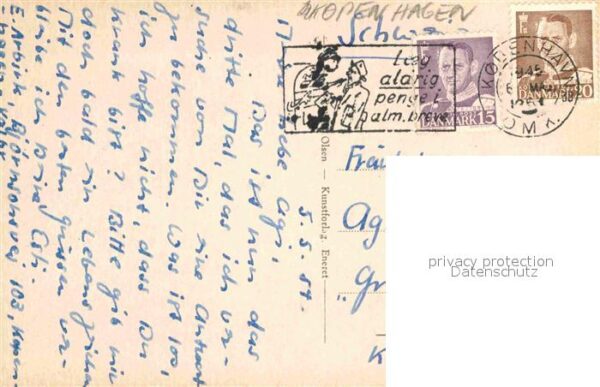 KOPENHAGEN
Læg
aldrig
penge i
alm. breve
KØBENHAVN
OMK.
DANMARK 15
DANMARK 20
5.5.54.
Meine liebe Agi,
Das ist nun das
dritte Mal, das ich ver-
suche von Dir eine Antwort
zu bekommen. Was ist los,
ich hoffe nicht, dass Du
krank bist? Bitte gib mir
doch bald ein Lebenszeichen
Mit den besten Grüssen ver-
bleibe ich Deine
103, Kopen-
Olsen - Kunstforlag. Eneret
Fräul
Ag
"Gr
K
privacy protection
Datenschutz